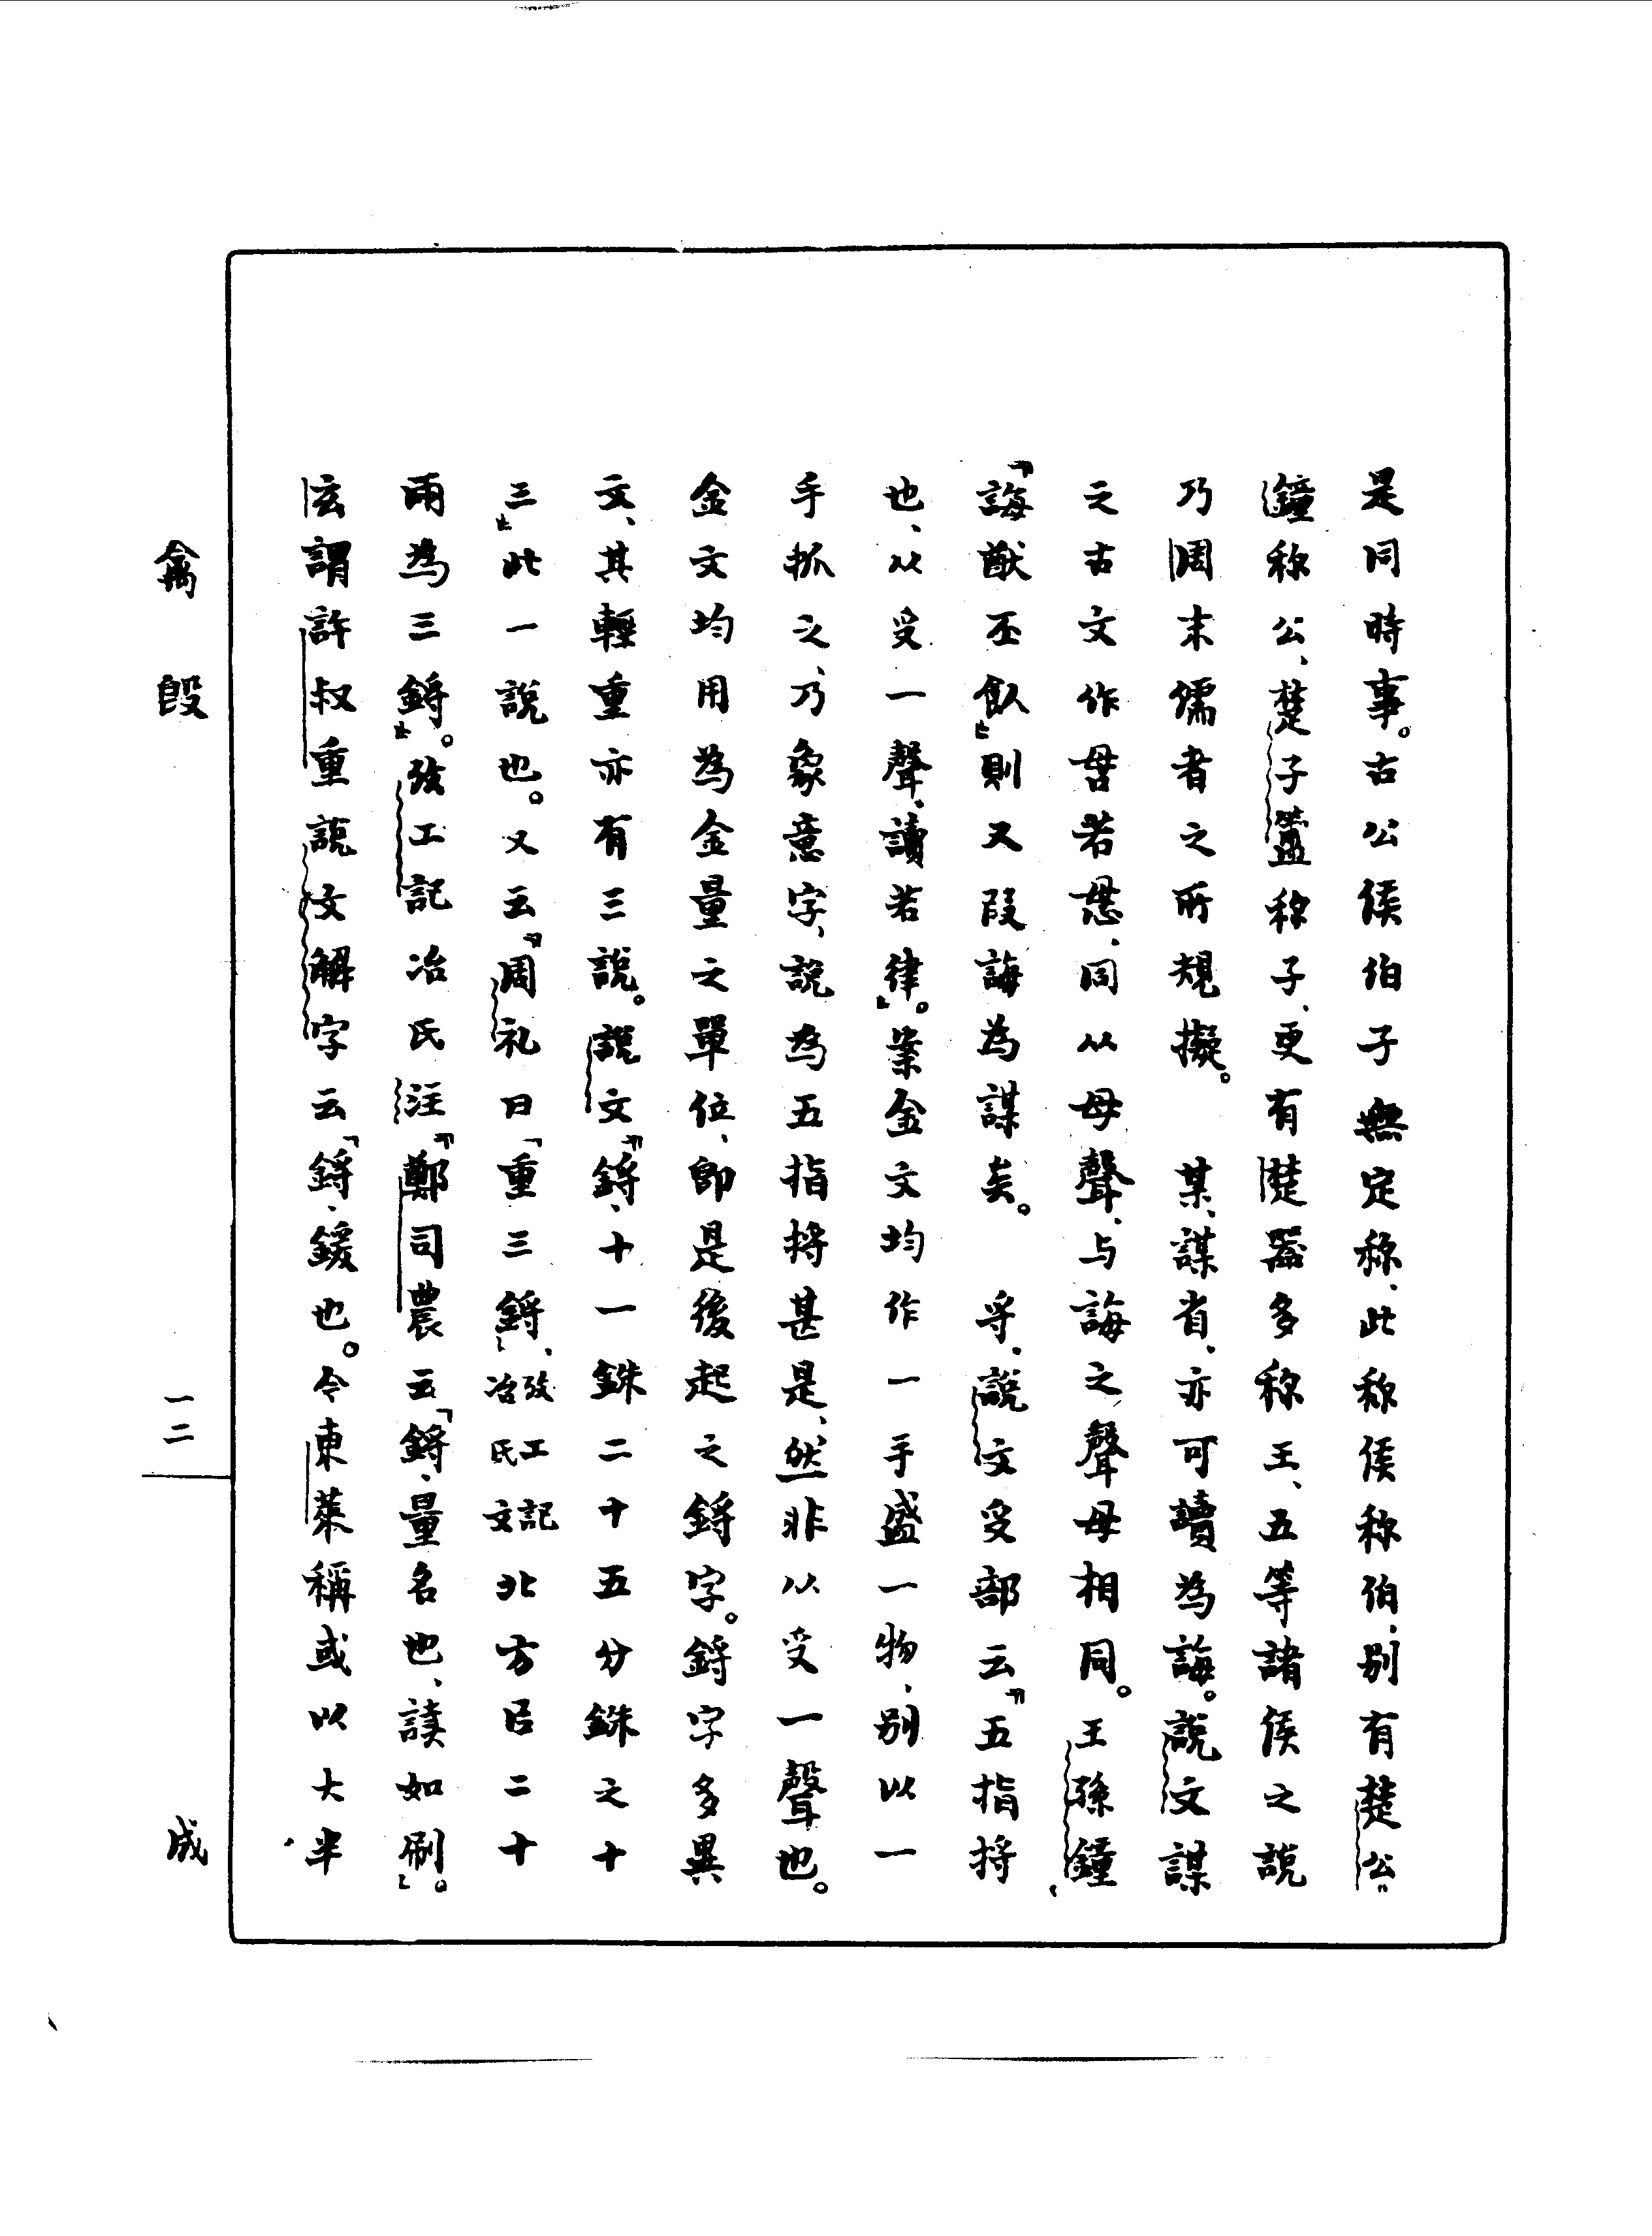 是同時事。古公侯伯子無定称、此称侯称伯、別有楚公
鐘称公、楚子簠称子、更有楚器多称王、五等諸侯之說
乃周末儒者之所規擬。　某、謀省、亦可讀為誨。說文謀
之古文作𠰔若𢘓、同从母聲、与誨之聲母相同。王孫鐘、
『誨猷丕飤』則又叚誨為謀矣。　寽、說文𠬪部云『五指捋
也、从𠬪一聲、讀若律』。案金文均作一手盛一物、別以一
手抓之、乃象意字、說為五指捋甚是、然非从𠬪一聲也。
金文均用為金量之單位、即是後起之鋝字。鋝字多異
文、其輕重亦有三說。說文『鋝、十一銖二十五分銖之十
三』此一說也。又云『周礼曰「重三鋝」、攷工記冶氏文北方㠯二十
兩為三鋝』。攷工記冶氏注『鄭司農云「鋝、量名也、讀如刷」。
玄謂許叔重說文解字云「鋝、鍰也。今東萊稱或以大半
禽𣪘
一二
成